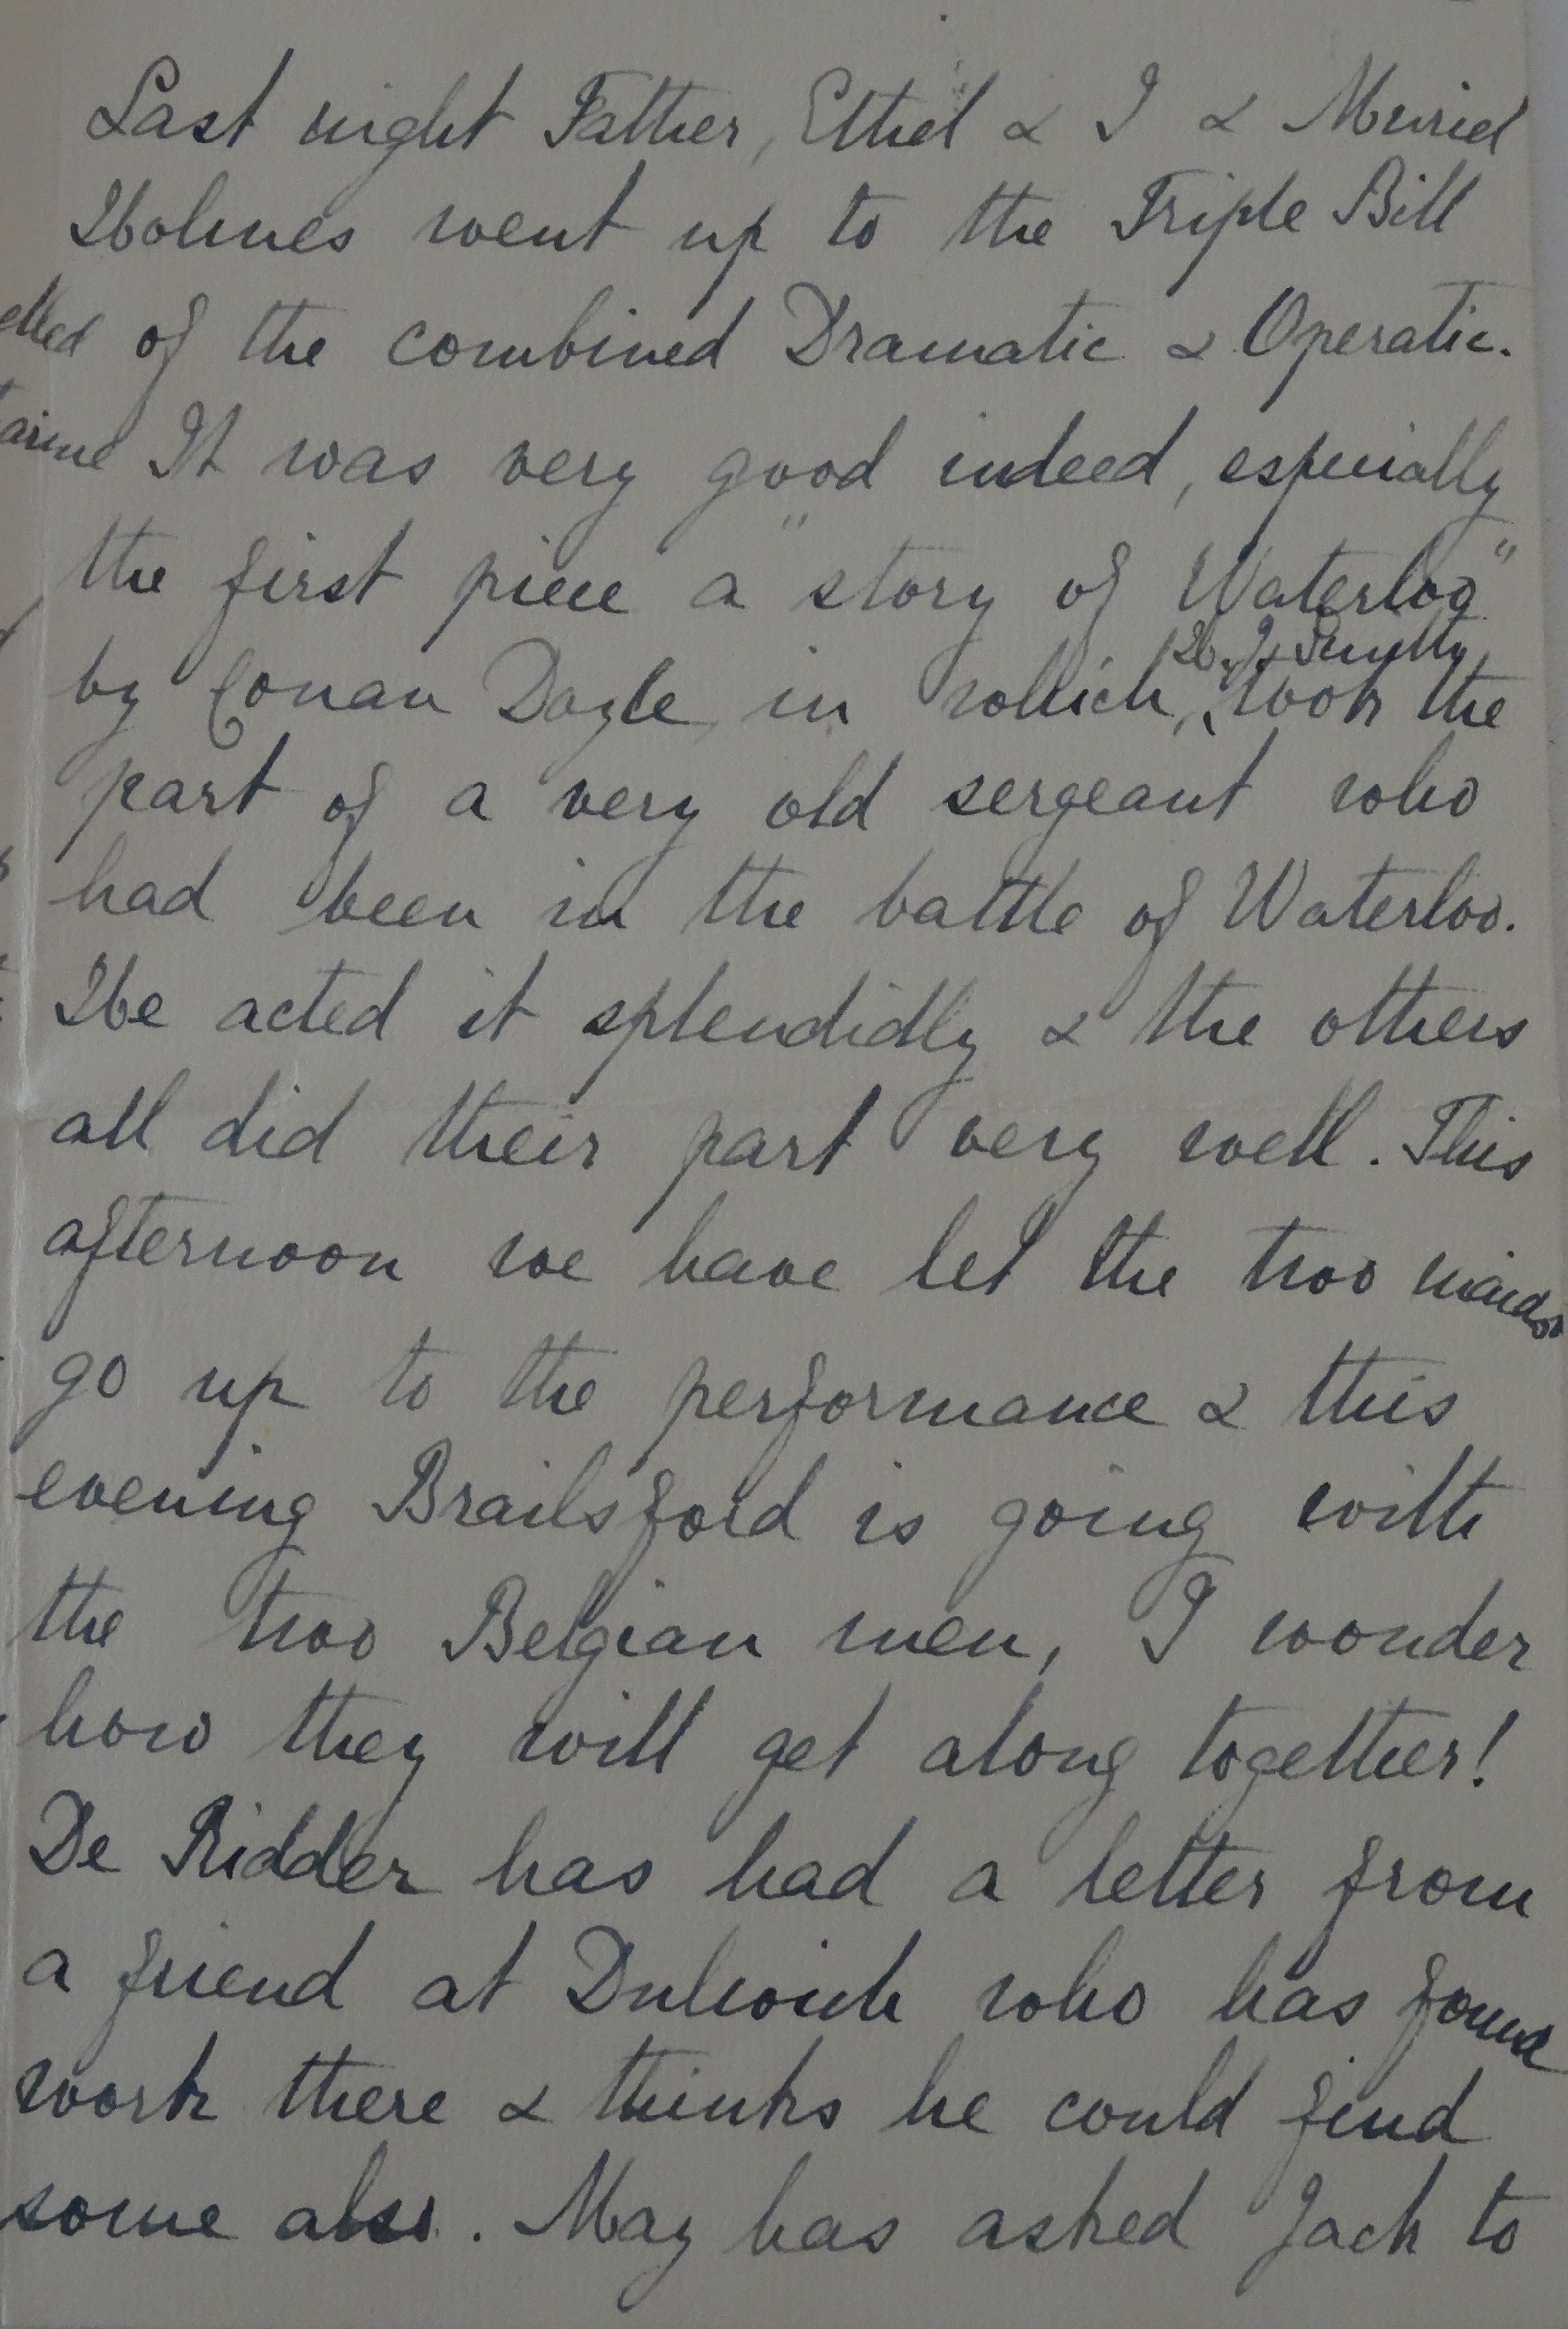 Last night Father, Ethel & I & Muriel
Holmes went up to the Triple Bill
of the combined Dramatic & Operatic.
It was very good indeed, especially
the first piece a "story of Waterloo"
by Conan Doyle, in which, took the
part of a very old sergeant who
had been in the battle of Waterloo.
He acted it splendidly & the others
all did their part very well. This
afternoon we have let the two maids
go up to the performance & this
evening Brailsford is going with
the two Belgian men, I wonder
how they will get along together!
De Ridder has had a letter from
a friend at Dulwich who has found
work there & thinks he could find
some also. May has asked Jack to